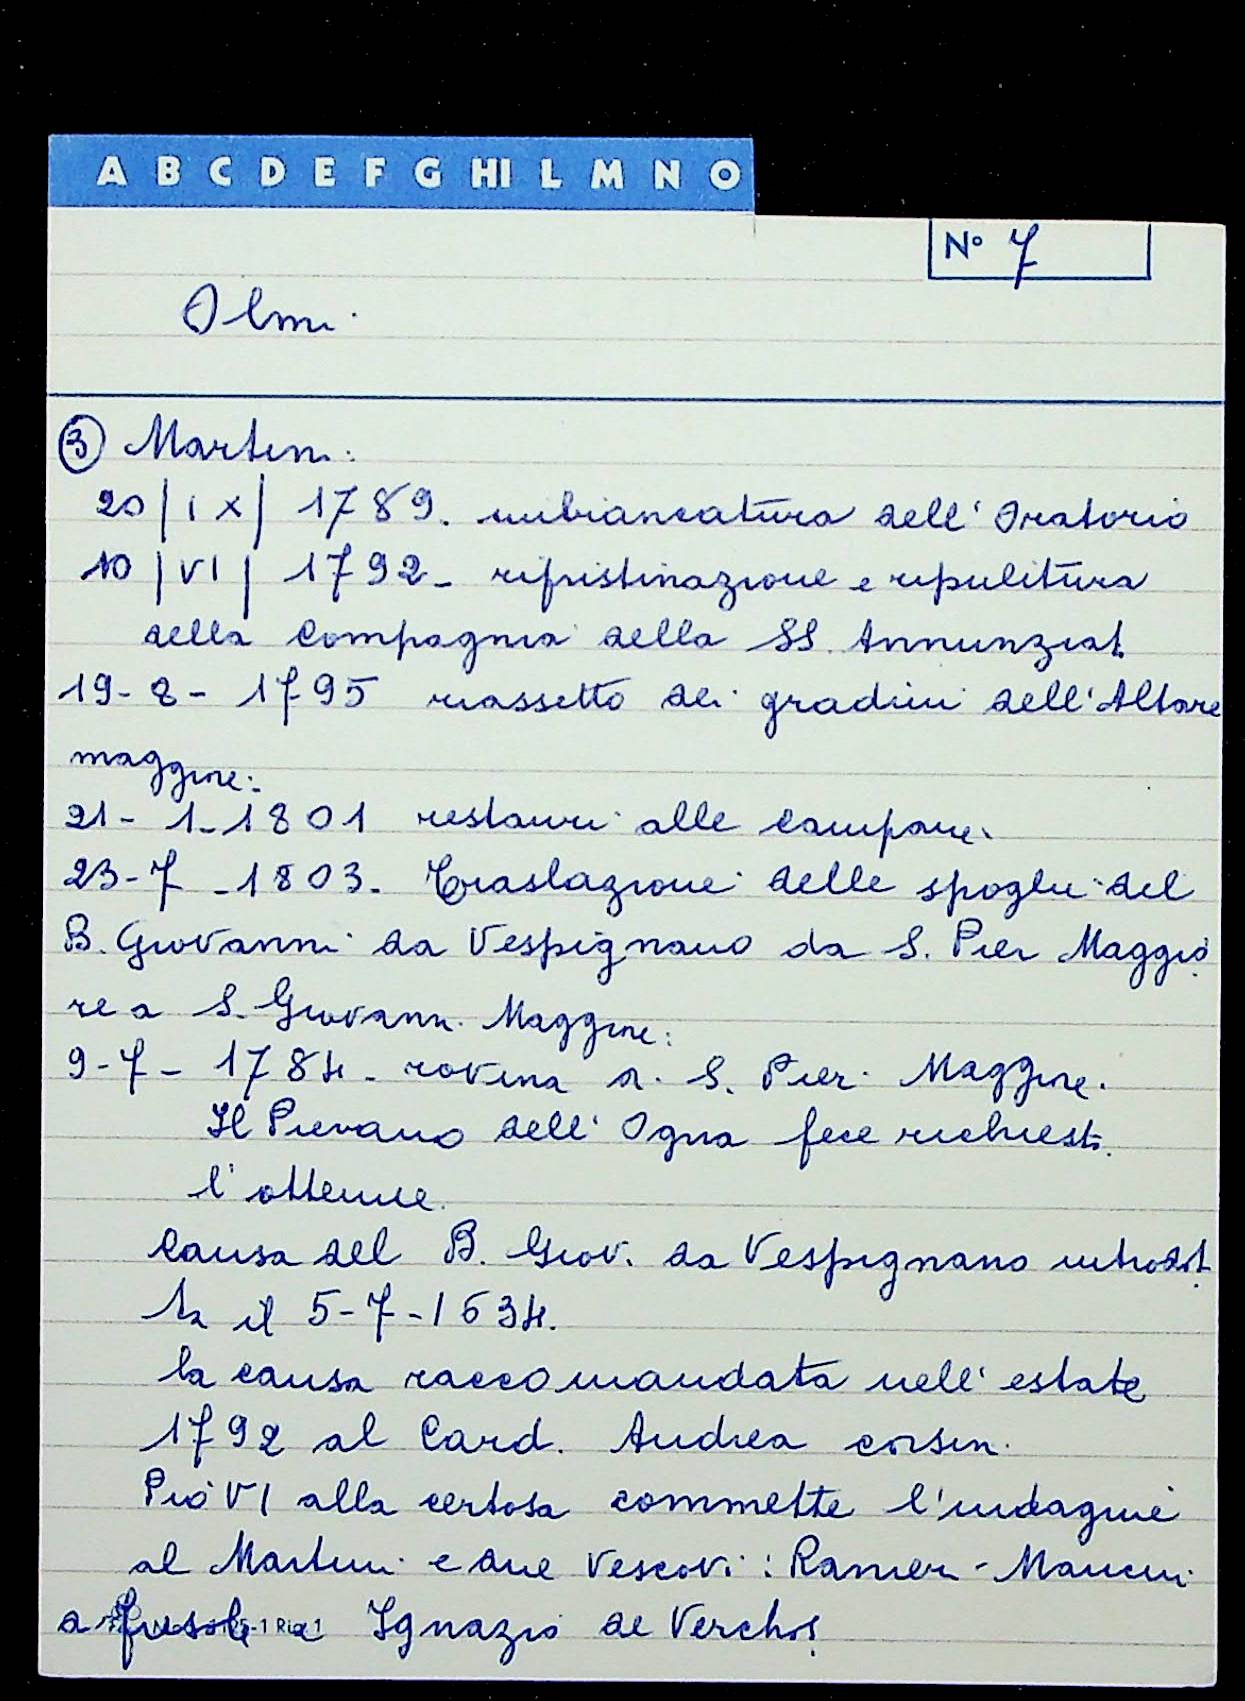 A B C D E F G HI L M N O
N° 7
Olmi
③ Martini:
20|IX| 1789. imbiancatura dell'Oratorio
10|VI| 1792 - ripristinazione e ripulitura
della Compagnia della SS. Annunziat
19-8-1795 riassetto dei gradini dell'Altare
maggiore.
21-1-1801 restauri alle campane.
23-7-1803. Traslazione delle spoglie del
B. Giovanni da Vespignano da S. Pier Maggio
re a S. Giovanni Maggiore:
9-7-1784. rovina S. Pier Maggiore.
Il Pievano dell'Ogna fece richiest.
l'ottenne.
Causa del B. Giov. da Vespignano introdot
ta il 5-7-1634.
la causa raccomandata nell'estate
1792 al Card. Andrea corsin.
Pio VI alla certosa commette l'indagine
al Martini e due Vescovi: Ranier - Mancini
a fiesole e Ignazio de